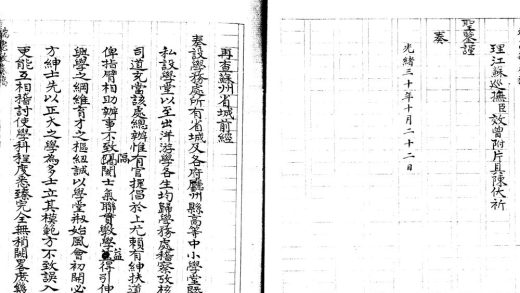 理江蘇巡撫臣效曾附片具陳伏祈
聖鑒謹
奏
光緒三十年十月二十二日
再查蘇州省城前經
奏設學務處所有省城及各府廳州縣高等中小學堂暨
私設學堂以至出洋游學各生均歸學務處稽察攷核
司道充當該處總辦惟有官提倡於上尤賴有紳扶道
俾指臂相助辦事不致隔閡士氣聯貫教學益得引伸
興學之綱維育才之樞紐誠以學堂甫始風會初開必
方紳士先以正大之學為多士立其模範方不致誤入
更能互相搘討使學科程度悉臻完全無稍闕畧庶幾